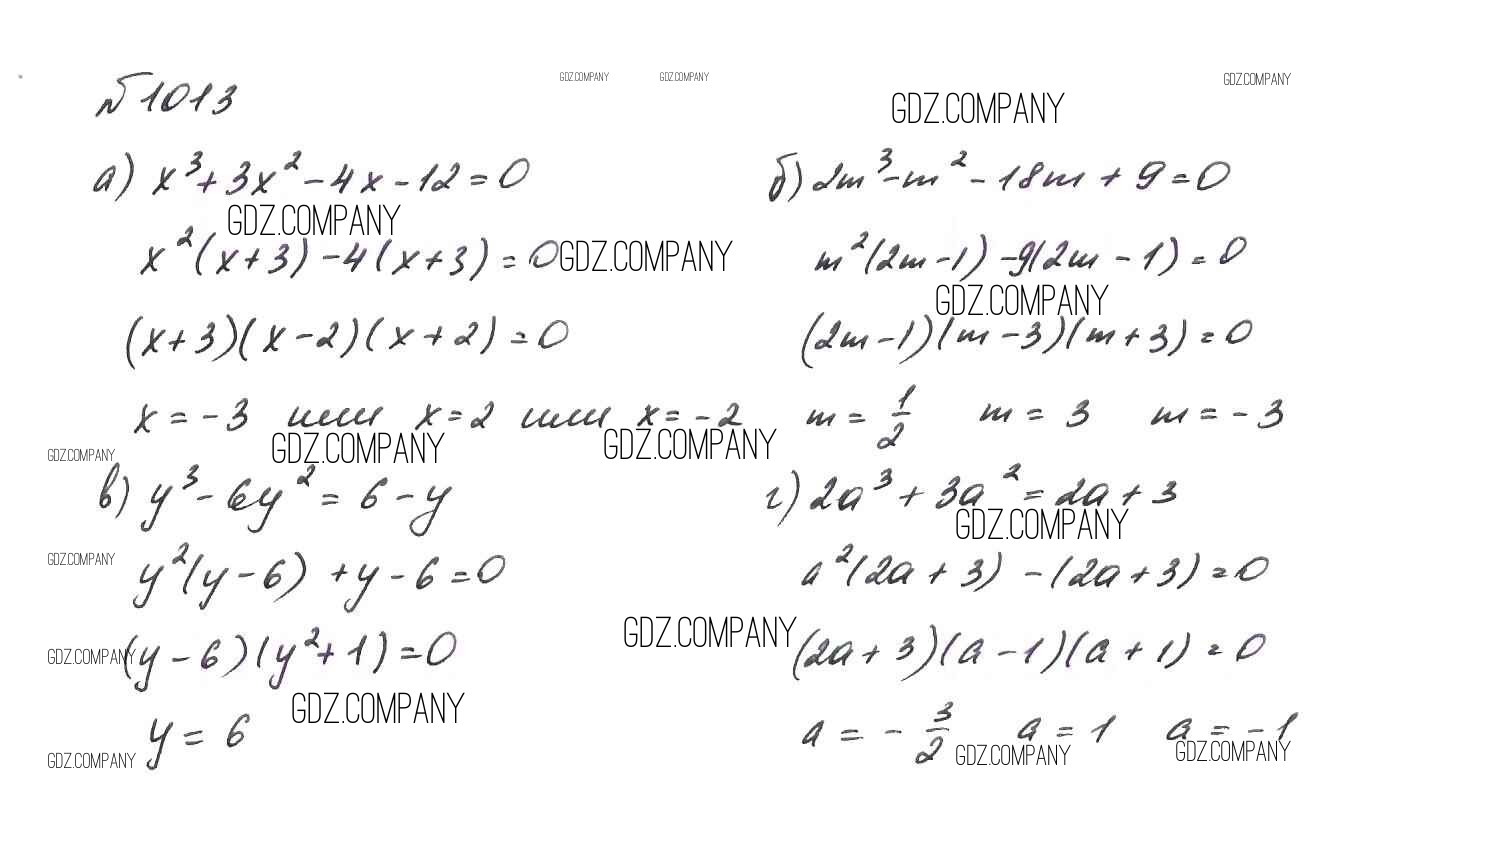 №1013
GDZ.COMPANY GDZ.COMPANY GDZ.COMPANY
GDZ.COMPANY
а) x³+3x²-4x-12=0
GDZ.COMPANY
x²(x+3)-4(x+3)=0
GDZ.COMPANY
(x+3)(x-2)(x+2)=0
x=-3 или x=2 или x=-2
GDZ.COMPANY GDZ.COMPANY
б) 2m³-m²-18m+9=0
m²(2m-1)-9(2m-1)=0
GDZ.COMPANY
(2m-1)(m-3)(m+3)=0
m=1/2 m=3 m=-3
GDZ.COMPANY
в) y³-6y²=6-y
GDZ.COMPANY
y²(y-6)+y-6=0
GDZ.COMPANY
(y-6)(y²+1)=0
GDZ.COMPANY
y=6
GDZ.COMPANY
г) 2a³+3a²=2a+3
GDZ.COMPANY
a²(2a+3)-(2a+3)=0
GDZ.COMPANY
(2a+3)(a-1)(a+1)=0
a=-3/2 a=1 a=-1
GDZ.COMPANY GDZ.COMPANY